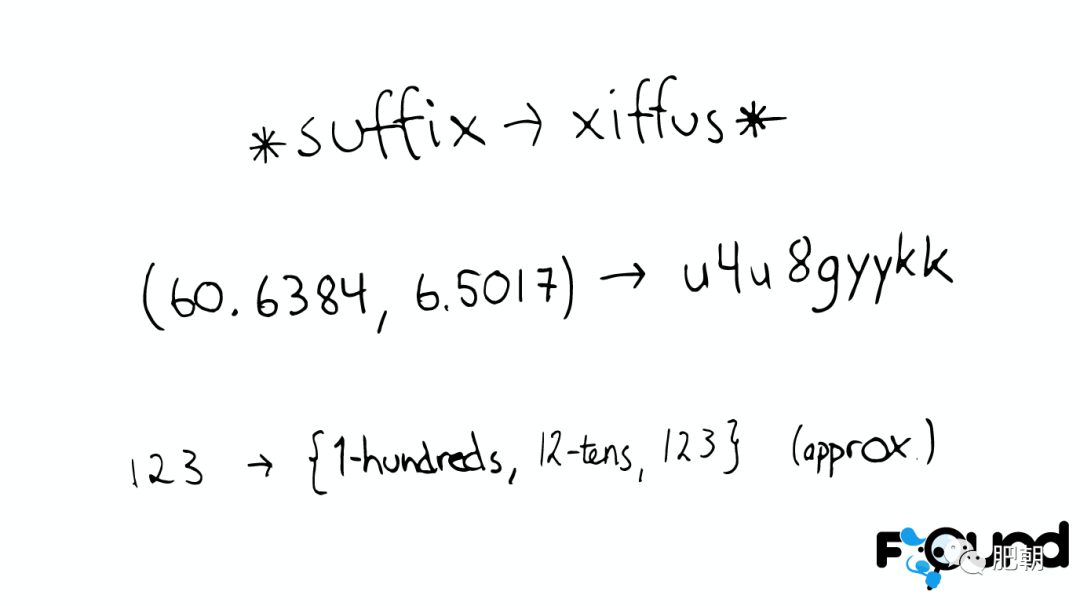 *suffix → xiffus*
(60.6384, 6.5017) → u4u8gyykk
123 → {1-hundreds, 12-tens, 123} (approx.)
Found
肥朝